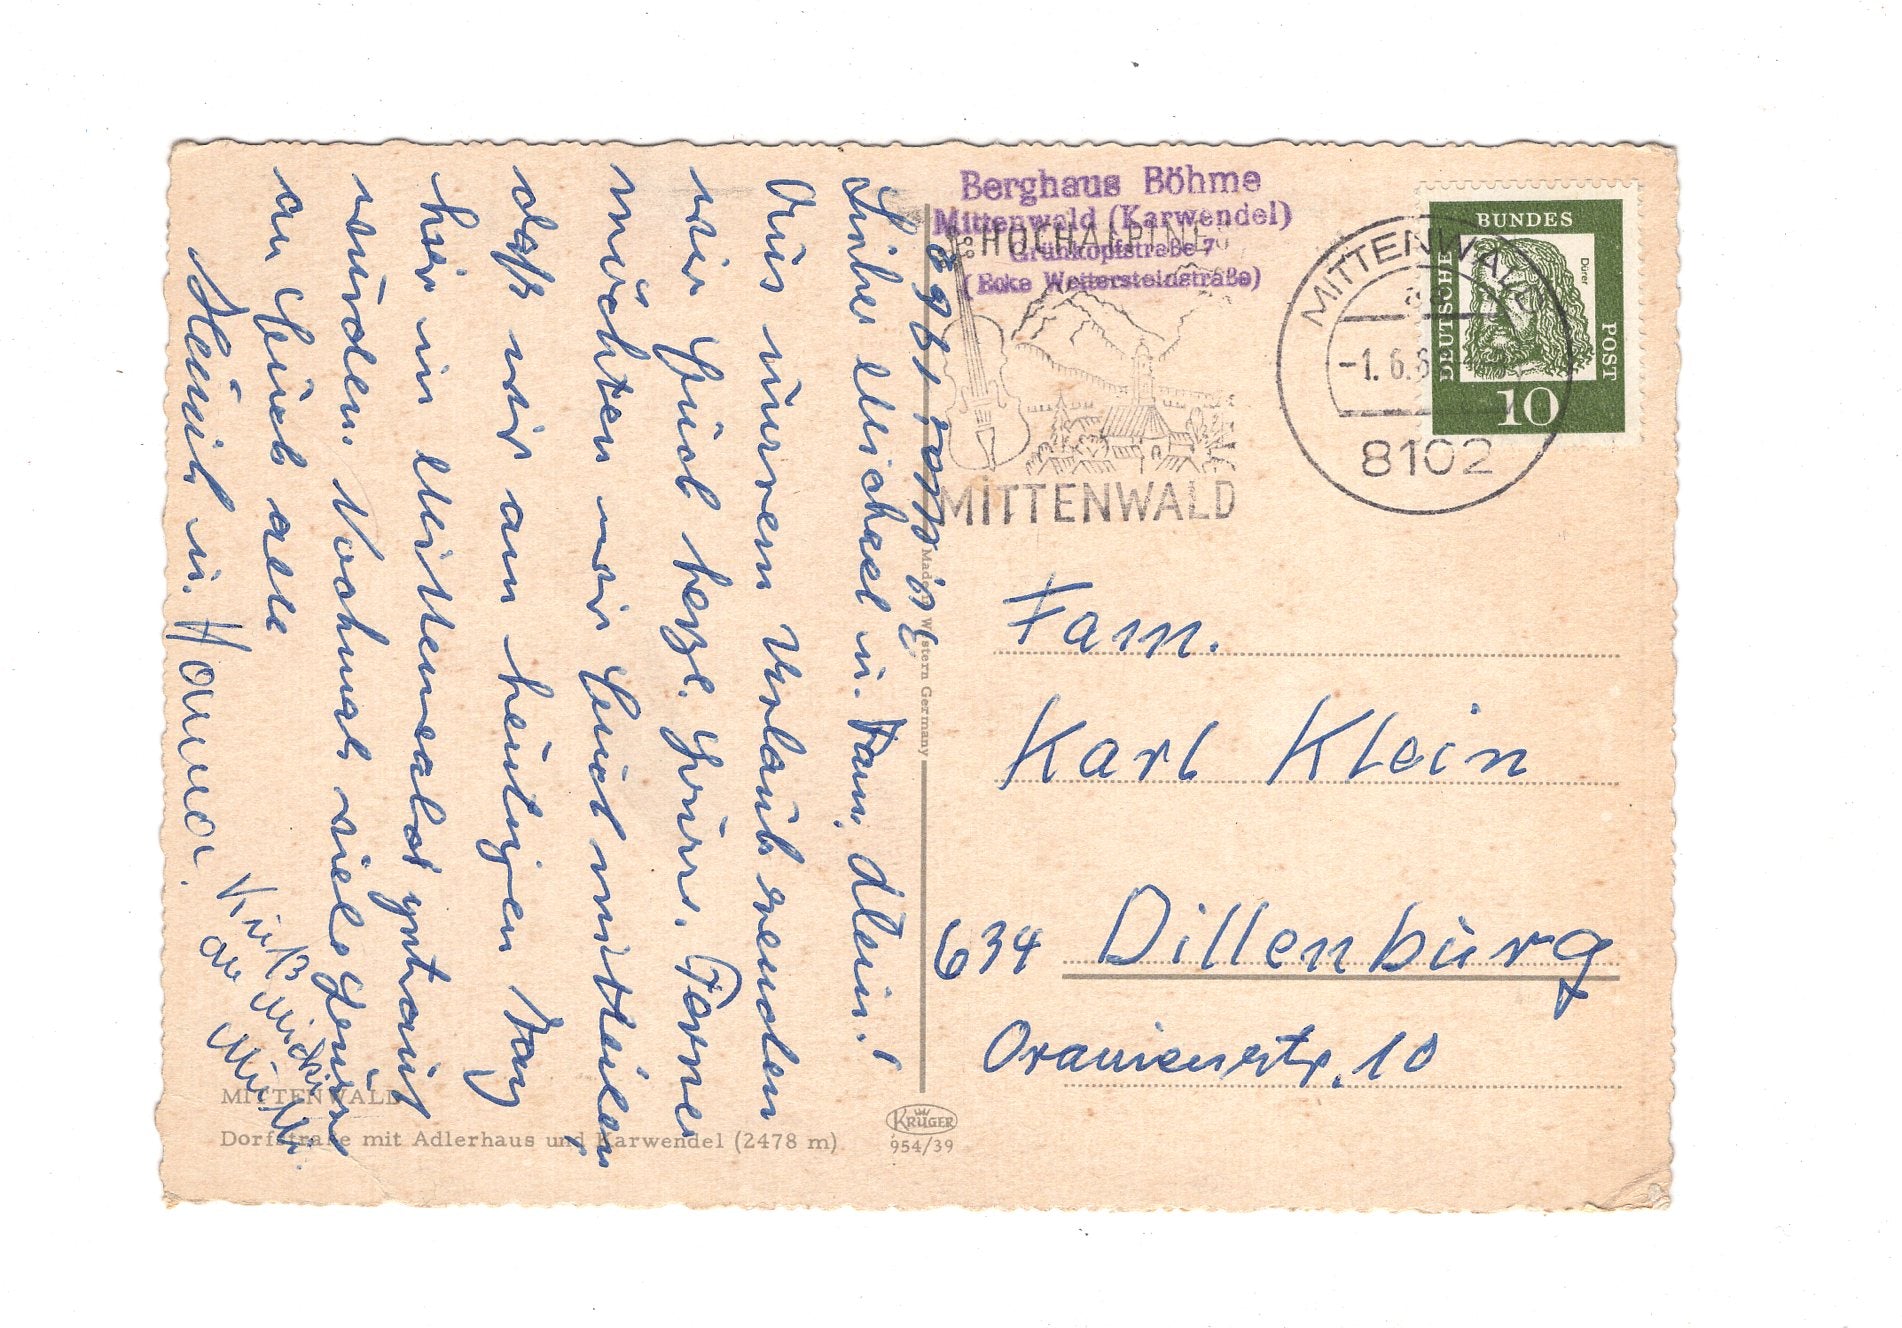 Berghaus Böhme
Mittenwald (Karwendel)
Grünkopfstraße 7
(Ecke Wettersteinstraße)
HOCHALPINE
MITTENWALD
MITTENWALD
-1.6.6
8102
DEUTSCHE
BUNDES
POST
Dürer
10
Lieber Michael u. Fam. Klein!
Aus unsrem Urlaub senden
wir Euch herzl. Grüsse. Ferner
möchten wir Euch mitteilen,
daß wir am heutigen Tag
hier in Mittenwald getraut
wurden. Nochmals viele Grüsse
an Euch alle
u. Hanna.
Kuß
an
Fam.
Karl Klein
634 Dillenburg
Oranienstr. 10
Made in Western Germany
MITTENWALD
Dorfstraße mit Adlerhaus und Karwendel (2478 m)
KRÜGER
954/39